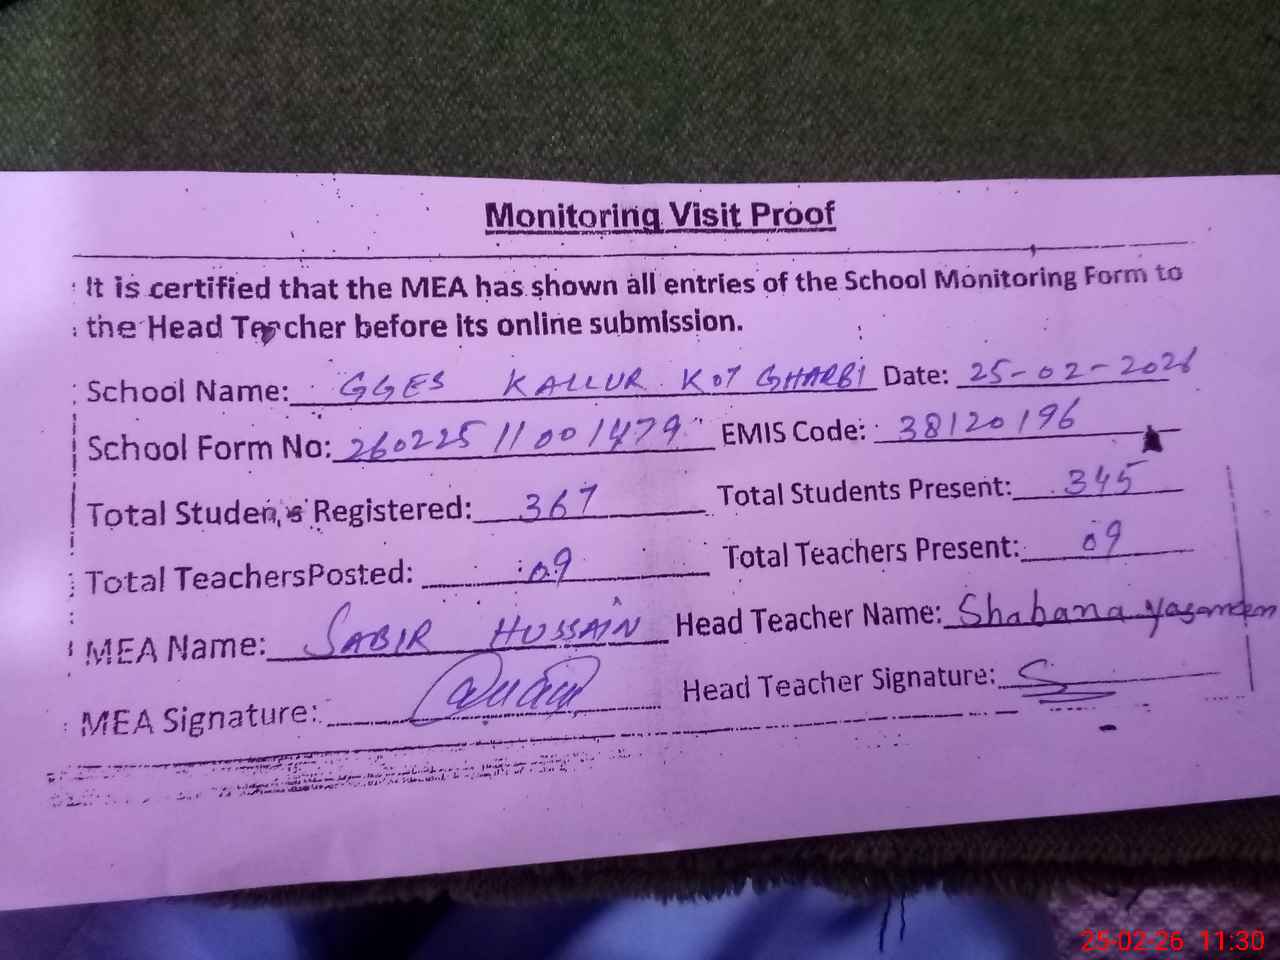 Monitoring Visit Proof
It is certified that the MEA has shown all entries of the School Monitoring Form to
the Head Teacher before its online submission.
School Name: GGES KALLUR KOT GHARBI Date: 25-02-2026
School Form No: 26022511001479 EMIS Code: 38120196
Total Students Registered: 367 Total Students Present: 345
Total TeachersPosted: 09 Total Teachers Present: 09
MEA Name: SABIR HUSSAIN Head Teacher Name: Shabana
MEA Signature: Head Teacher Signature:
25-02-26 11:30